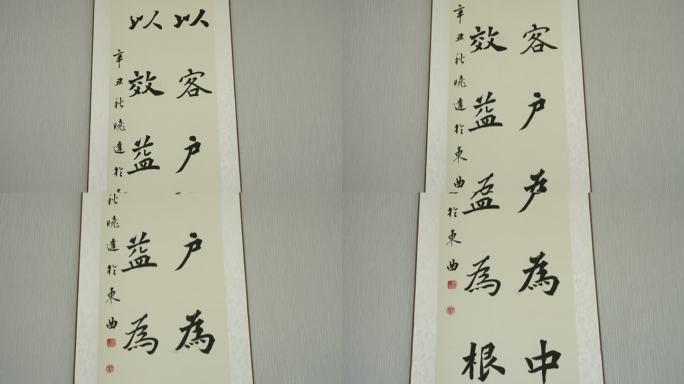 以客户
以效益
辛丑秋晓達於
客户
效益
辛丑秋晓達於東曲
户為
益為
秋晓達於東曲
為中
益為根
於東曲